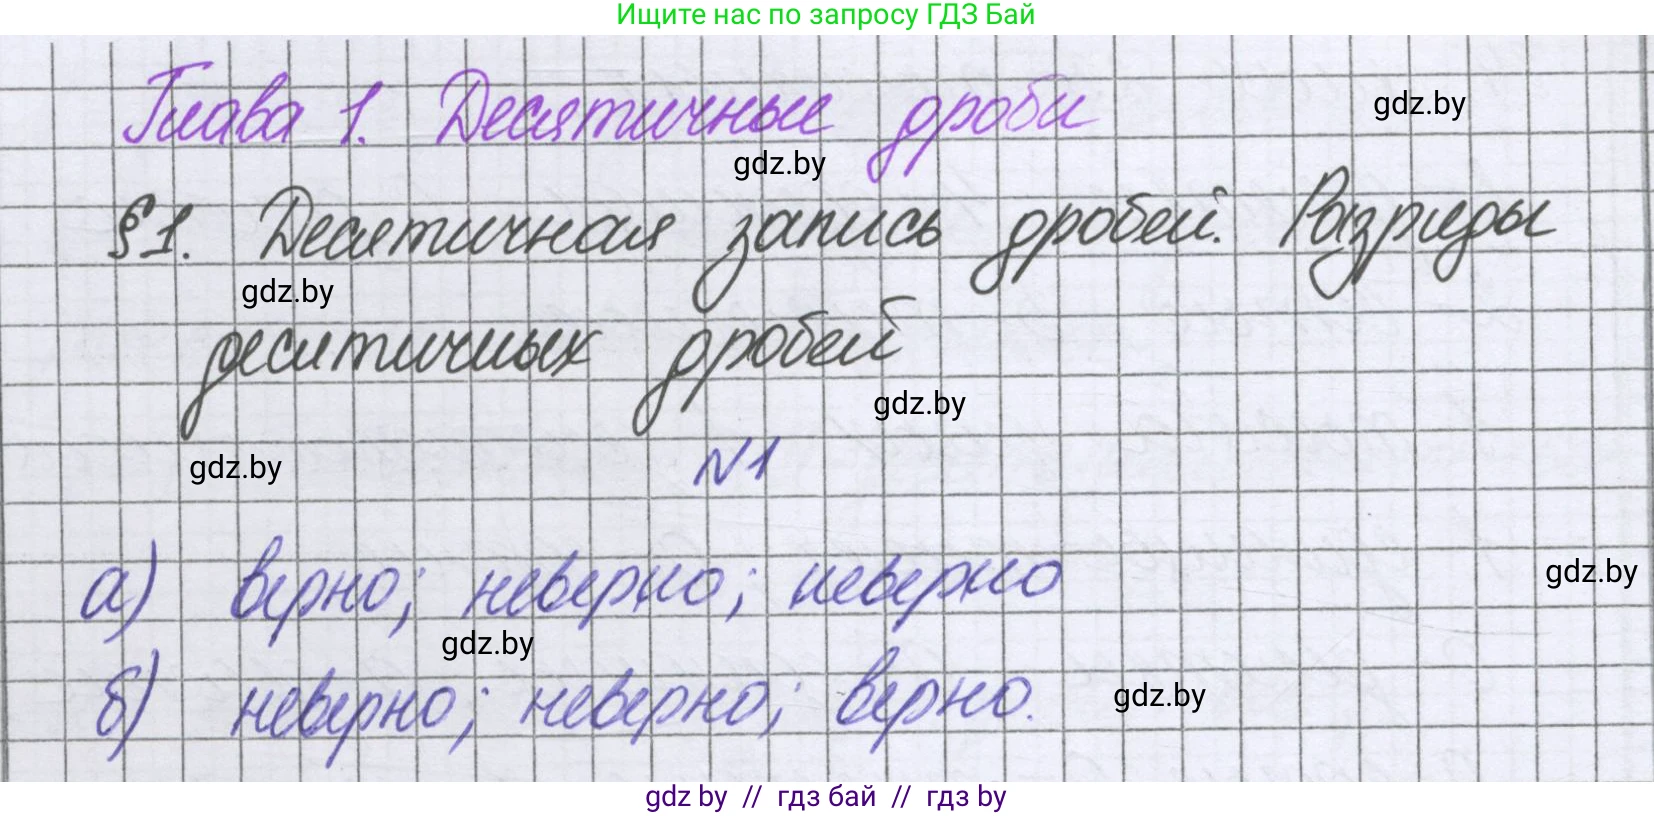 Ищите нас по запросу ГДЗ Бай
Глава 1. Десятичные дроби
gdz.by
gdz.by
§1. Десятичная запись дробей. Разряды
gdz.by
десятичных дробей
gdz.by
gdz.by
N1
а) верно; неверно; неверно
gdz.by
gdz.by
б) неверно; неверно; верно.
gdz.by
gdz by // гдз бай // гдз by